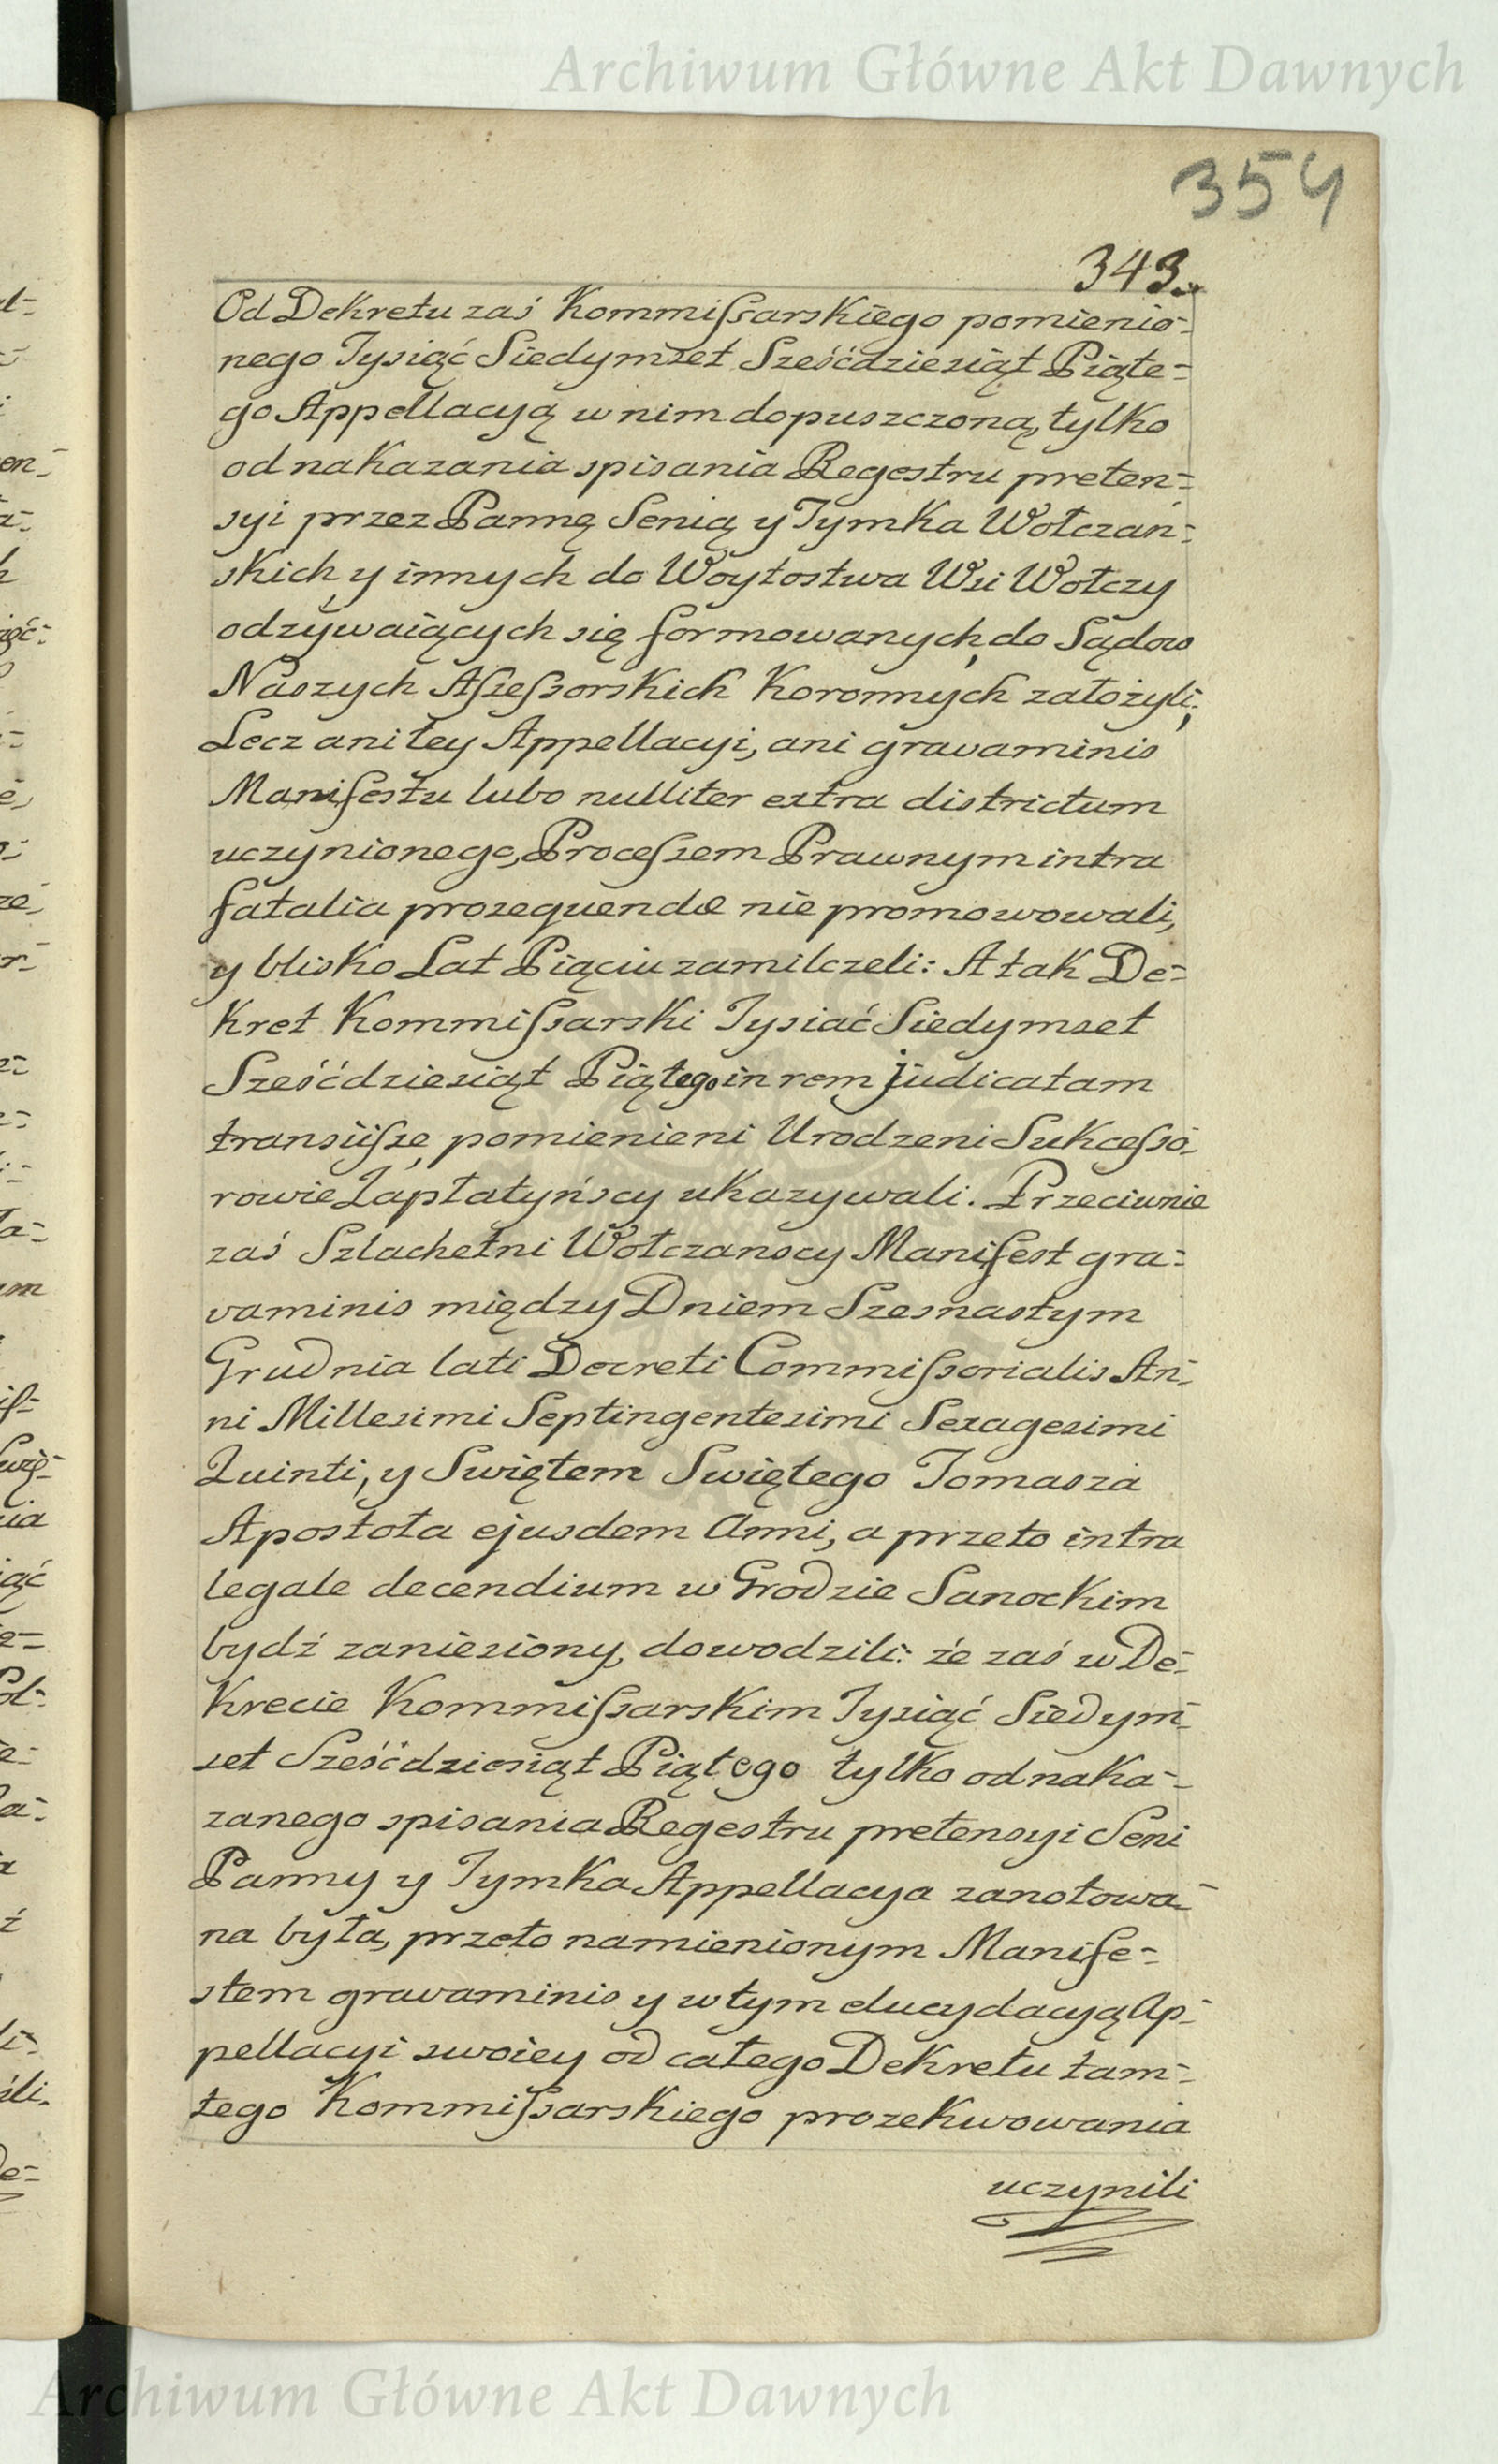 Archiwum Główne Akt Dawnych
354
343.
Od Dekretu zaś Kommissarskiego pomienio-
nego Tysiąć Siedymset Sześćdziesiąt Piąte-
go Appellacyą w nim dopuszczoną, tylko
od nakazania spisania Regestru preten-
syi przez Pannę Senią y Tymka Wołczań-
skich, y innych do Woytostwa Wsi Wołczy
odzywaiących się formowanych, do Sądow
Naszych Assessorskich Koronnych założyli;
Lecz ani tey Appellacyi, ani gravaminis
Manifestu lubo nulliter extra districtum
uczynionego, Processem Prawnym intra
fatalia prosequendæ nie promowowali,
y blisko Lat Piąciu zamilczeli: A tak De-
kret Kommissarski Tysiać Siedymset
Sześćdziesiąt Piątego in rem judicatam
transiisse, pomienieni Urodzeni Sukcesso-
rowie Łapłatyńscy ukazywali. Przeciwnie
zaś Szlachetni Wołczanscy Manifest gra-
vaminis między Dniem Szesnastym
Grudnia lati Decreti Commissorialis An-
ni Millesimi Septingentesimi Sexagesimi
Quinti, y Swiętem Swiętego Tomasza
Apostoła ejusdem Anni, a przeto intra
legale decendium w Grodzie Sanockim
bydź zaniesiony, dowodzili: że zaś w De-
krecie Kommissarskim Tysiąć Siedym-
set Sześćdziesiąt Piątego tylko od naka-
zanego spisania Regestru pretensyi Seni
Panny y Tymka Appellacya zanotowa-
na była, przeto namienionym Manife-
stem gravaminis y w tym elucydacyą Ap-
pellacyi swoiey od całego Dekretu tam-
tego Kommissarskiego prozekwowania
uczynili
Archiwum Główne Akt Dawnych